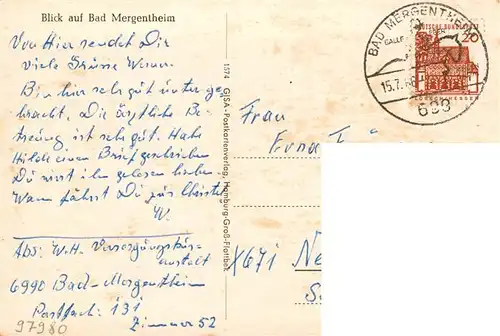 Blick auf Bad Mergentheim
Von Hier sendet Dir
viele Grüsse Werner.
Bin hier sehr gut unterge
bracht. Die ärztliche Be-
treuung ist sehr gut. Habe
Hilde einen Brief geschrieben
Du wirst ihn gelesen haben
Wann fährst Du zur
W.
Abs: W.H. Versorgungskur=
anstalt
6990 Bad-Mergentheim
Postfach: 131
Zimmer 52
97980
1574 GISA-Postkartenverlag, Hamburg-Groß-Flottbek
BAD MERGENTHEIM
15.7.
699
DEUTSCHE BUNDESPOST
20
Frau
Erna
X671